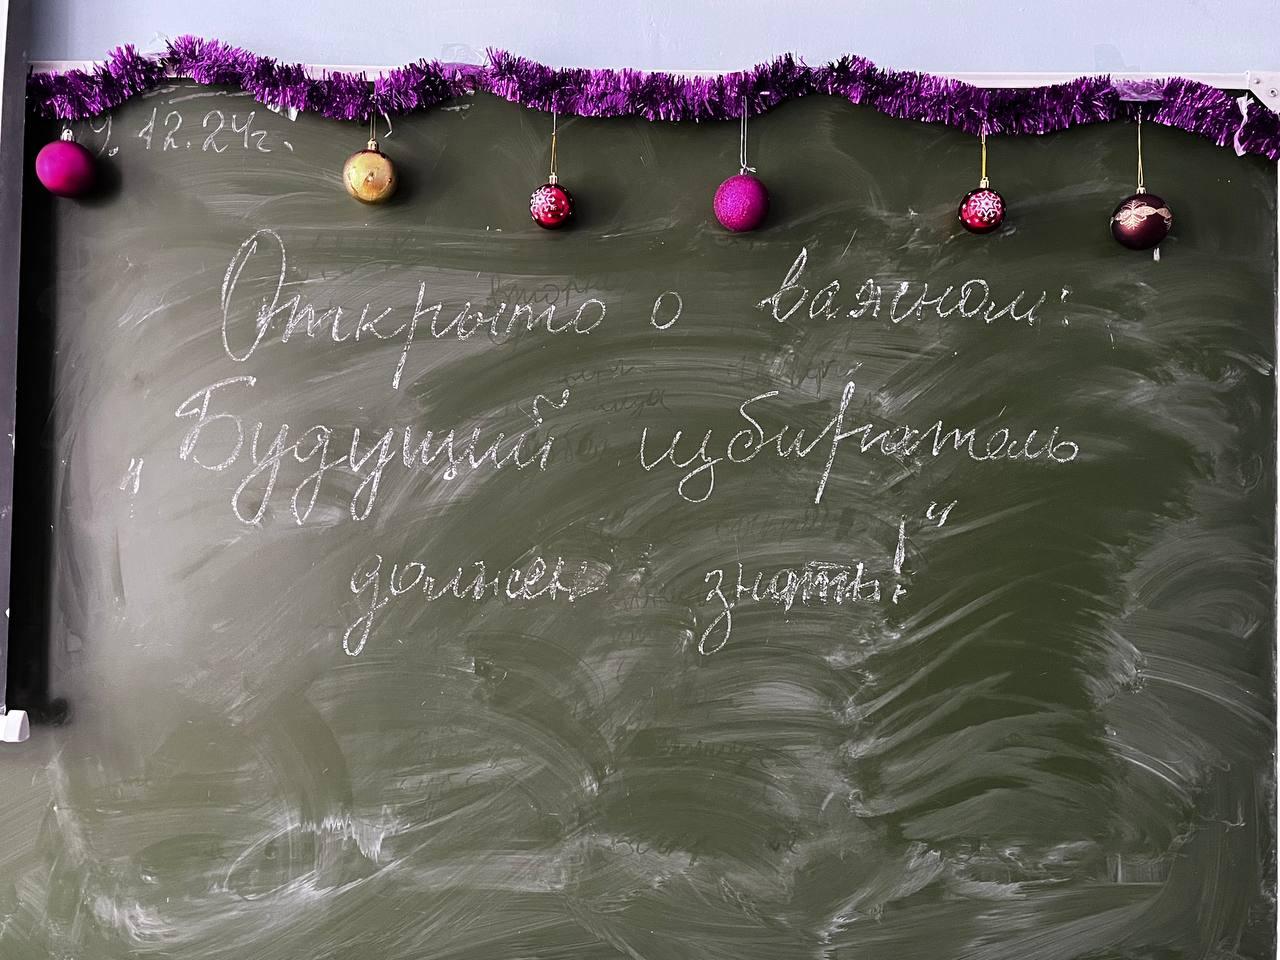 .12.24г.
Открыто о важном:
„Будущий избиратель
должен знать!“